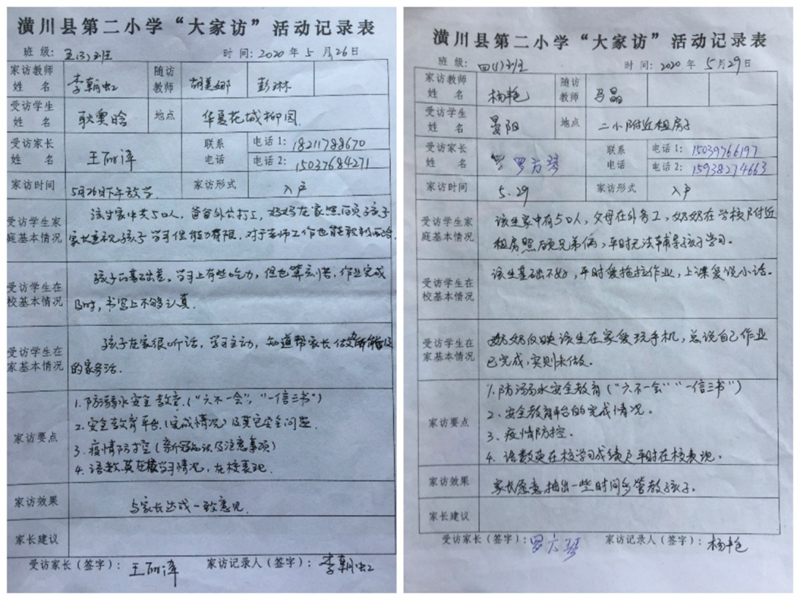 潢川县第二小学“大家访”活动记录表
班 级: 五(3)班 时 间: 2020 年 5 月 26 日
家访教师姓名 李朝虹 随访教师 彭琳
受访学生姓名 地点 华夏花城柳园
受访学生家长姓名 联系电话 电话 1: 18211788670
电话 2: 15037684271
家访时间 5月26日下午放学 家访形式 入户
受访学生家庭基本情况
该生家中共5口人,爸爸外出打工,妈妈在家照顾孩子
家长重视孩子学习但能力有限,对于老师工作也能积极配合。
受访学生在校基本情况
孩子的基础差,学习上有些吃力,但也算刻苦,作业完成
及时,书写上不够认真
受访学生在家基本情况
孩子在家很听话,学习主动,知道帮家长做
的家务活。
家访要点
1.防溺水安全教育(“六不一会”,“一信三书”)
2.安全教育平台(完成情况)及其它安全问题
3.疫情防控(及注意事项)
4.语数英在校学习情况,在校表现
家访效果 与家长达成一致意见
家长建议
受访家长(签字): 家访记录人(签字): 李朝虹
潢川县第二小学“大家访”活动记录表
班 级: 四(1)班 时 间: 2020 年 5 月 29 日
家访教师姓名 杨艳 随访教师 马晶
受访学生姓名 晏阳 地点 二小附近租房子
受访家长姓名 罗方琴 联系电话 电话 1: 15039766197
电话 2: 15938274663
家访时间 5.29 家访形式 入户
受访学生家庭基本情况
该生家中有5口人,父母在外务工,奶奶在学校附近
租房照顾兄弟俩,平时无法辅导孩子学习。
受访学生在校基本情况
该生基础不好,平时爱拖拉作业,上课爱说小话。
受访学生在家基本情况
奶奶反映该生在家爱玩手机,总说自己作业
已完成,实则未做。
家访要点
1.防溺水安全教育(“六不一会”“一信三书”)
2.安全教育平台的完成情况。
3.疫情防控。
4.语数英在校学习成绩及平时在校表现。
家访效果 家长愿意抽出一些时间多管教孩子。
家长建议
受访家长(签字): 罗方琴 家访记录人(签字): 杨艳